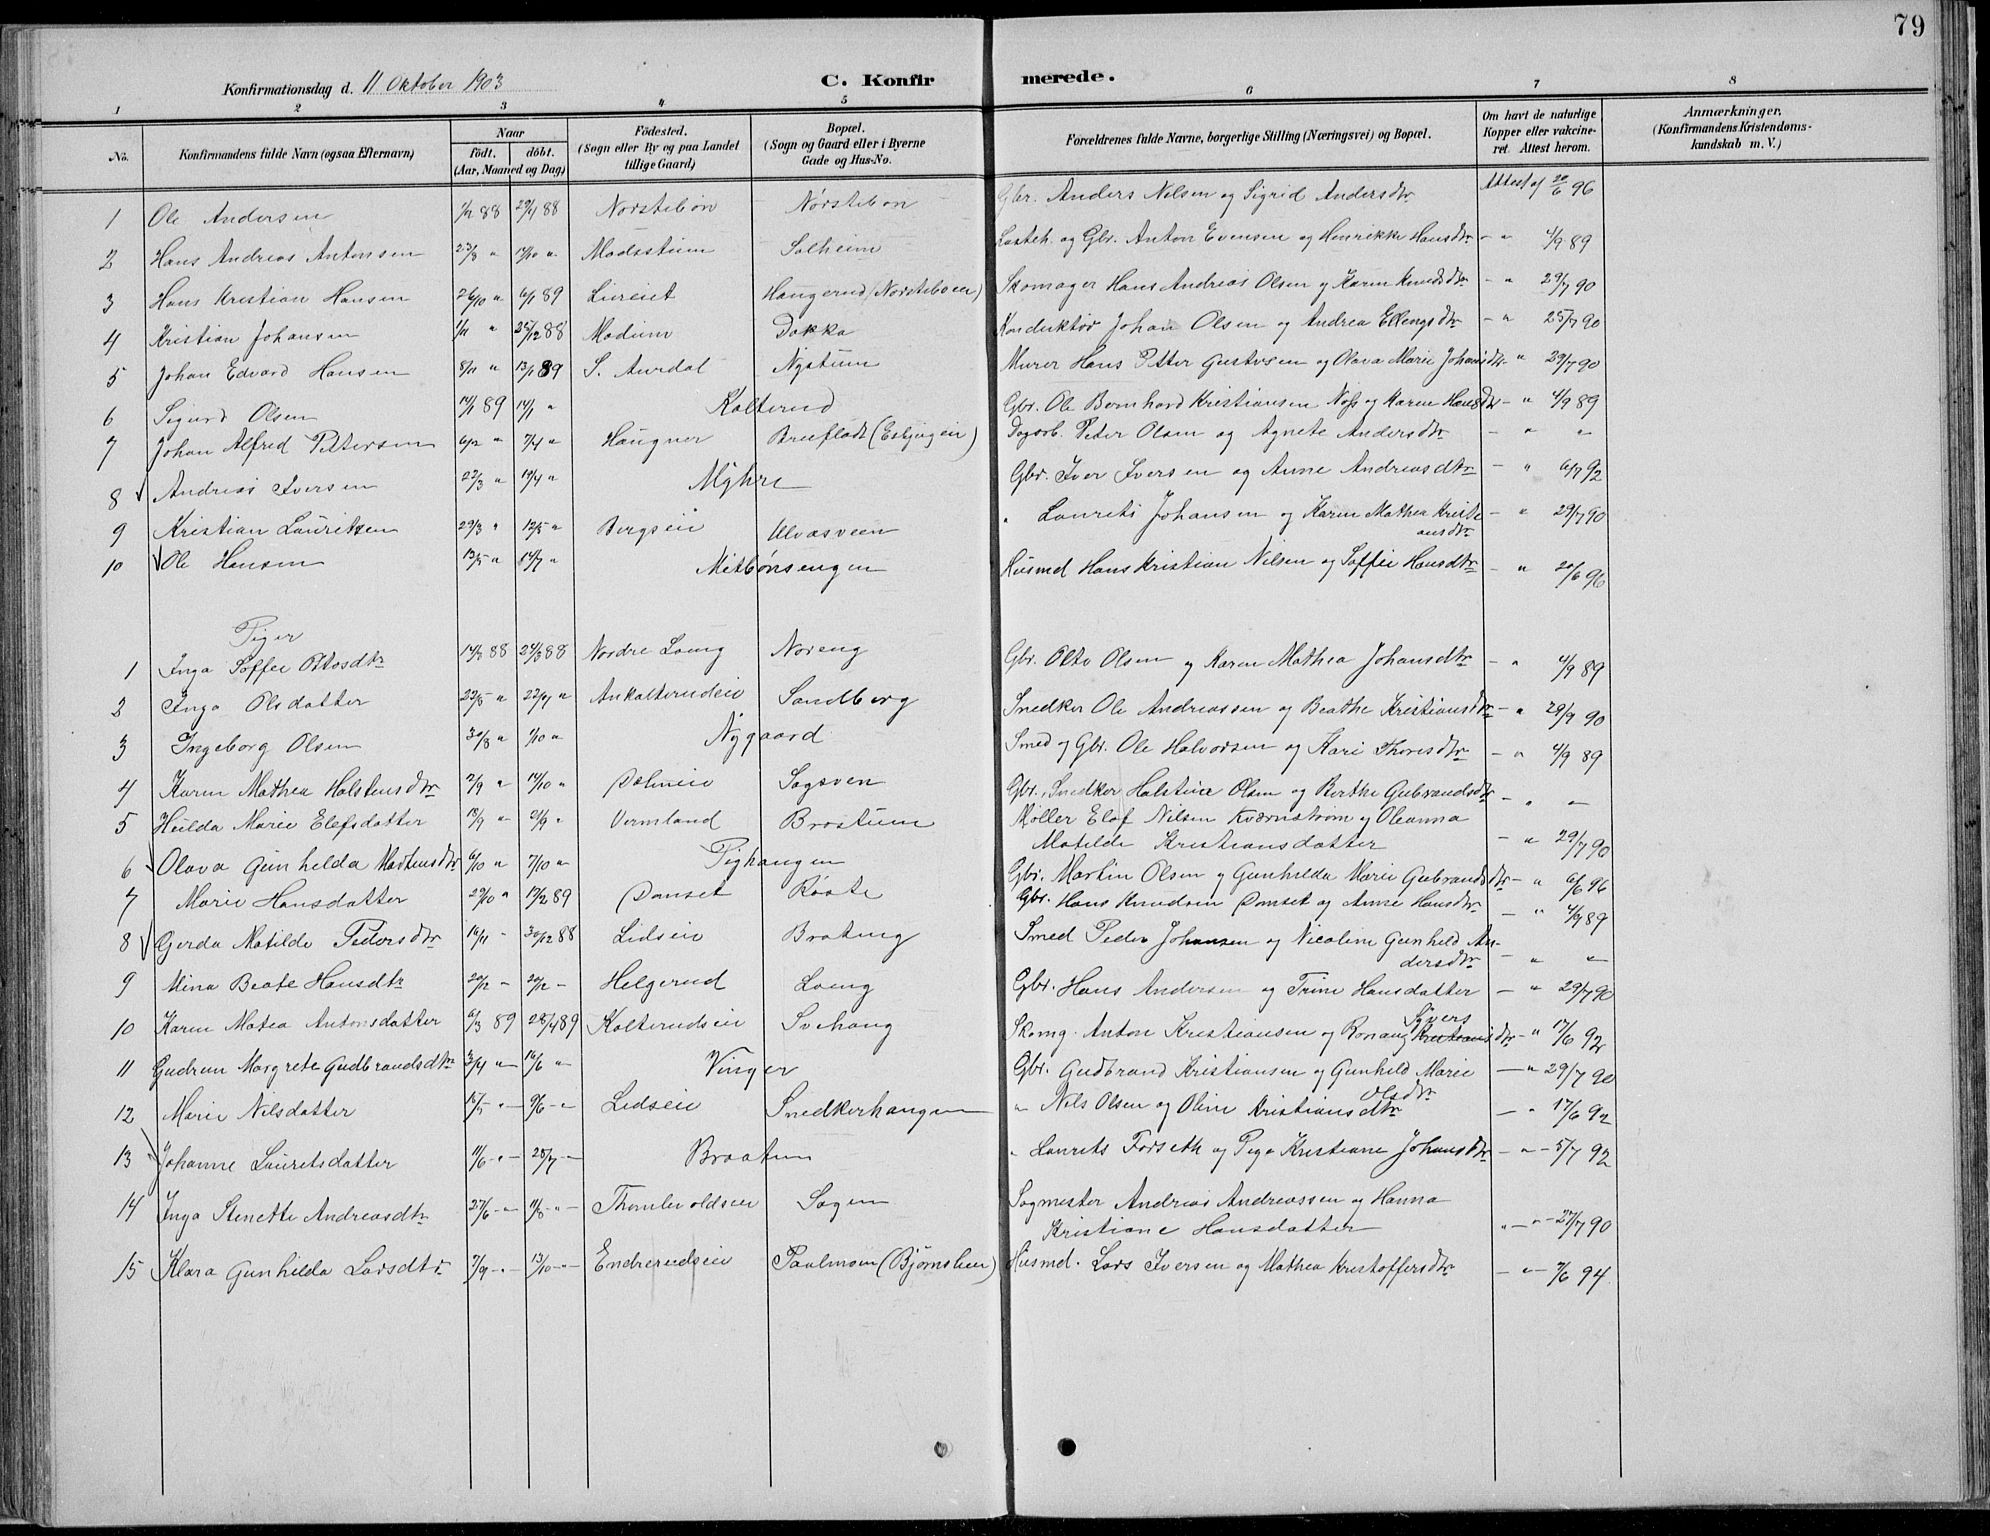 79
Konfirmationsdag d. 11 Oktober 1903 C. Konfir merede.
1 2 3 4 5 6 7 8
No. Konfirmandens fulde Navn (ogsaa Efternavn) Naar födt. döbt. (Aar, Maaned og Dag) Födested. (Sogn eller By og paa Landet tillige Gaard) Bopæl. (Sogn og Gaard eller i Byerne Gade og Hus-No. Forældrenes fulde Navne, borgerlige Stilling (Næringsvei) og Bopæl. Om havt de naturlige Kopper eller vakcineret. Attest herom. Anmærkninger. (Konfirmandens Kristendomskundskab m. V.)
1 Ole Andersen 88 29/4 88 Norstebön Nørstebön Gbr. Anders Nilsen og Sigrid Andersdtr Attest af 20/6 96
2 Hans Andreas Antonsen 23/3 " 14/10 " Solheim og Gbr. Anton Evensen og Henrikke Hansdtr - " 4/9 89
3 Hans Kristian Hansen 26/10 " 6/1 89 Liereiet Haugerud (Norsteboeie) Skomager Hans Andreas Olsen og Karen Knudsdtr - " 29/7 90
4 Kristian Johansen 1/11 " 25/12 88 Modum Dokka Konduktør Johan Olsen og Andrea Ellengsdtr - " 25/7 90
5 Johan Edvard Hansen 8/11 " 13/1 89 S. Aurdal Nystuen Murer Hans Petter Gustvsen og Olava Marie Johansdtr " 29/7 90
6 Sigurd Olsen 14/1 89 14/1 " Kolterud Gbr. Ole Bernhard Kristiansen og Karen Hansdtr - " 4/9 89
7 Johan Alfred Pettersen 6/2 " 7/4 " Haugner Breifladt (Esbjugeie) Dagarb. Peter Olsen og Agnete Andersdtr - " "
8 Andreas Iversen 22/3 " 19/4 " Myhre Gbr. Iver Iversen og Anne Andreasdtr - " 6/7 92
9 Kristian Lauritzen 29/3 " 12/5 " Bergseie Ulvasveen " Laurits Johansen og Karen Mathea Kristiansdtr - " 29/7 90
10 Ole Hansen 13/5 " 14/7 " Mitbönsengen Husmd Hans Kristian Nilsen og Soffie Hansdtr - " 20/6 96
Piger
1 Inga Soffie Ottosdtr 14/3 88 88 Nordre Loeng Noreng Gbr. Otto Olsen og Karen Mathea Johansdtr - " 4/9 89
2 Inga Olsdatter 23/5 " 22/7 " Ankolterudeie Sandberg Snedker Ole Andreassen og Beathe Kristiansdtr - " 29/9 90
3 Ingeborg Olsen 30/8 " 1/10 " Nygaard Smed og Gbr. Ole Halvorsen og Kari Thoresdtr - " 4/9 89
4 Karen Mathea Holstensdtr 2/9 " 14/10 " Sagsven Gbr. Snedker Holstein Olsen og Berthe Gubrandsdtr - " -
5 Hulda Marie Elefsdatter 13/9 " " Vermland Brostuen Møller Elof Nilsen Kværnstrøm og Oleanna
Matilde Kristiansdatter - " 29/7 90
6 Olava Gunhilda Martinsdtr 6/10 " 7/10 " Pighaugen Gbr. Martin Olsen og Gunhilda Marie Gubrandsdtr - " 6/6 96
7 Marie Hansdatter 29/10 " 17/2 89 Røste Gbr. Hans Knudsen og Anne Hansdtr - " 4/9 89
8 Gerda Matilde Pedersdtr 16/11 - 30/12 88 Lidseie Brateng Smed Peder Johansen og Nicoline Gunhild Andersdtr - " "
9 Mina Beate Hansdtr 20/12 - 20/12 - Helgerud Loeng Gbr. Hans Andersen og Trine Hansdatter - " 29/7 90
10 Karen Matea Antonsdatter 6/3 89 28/4 89 Kolterudseie Svehaug Skomg. Anton Kristiansen og Ronaug Sjvers Kristiansdtr - " 17/6 92
11 Gudrun Margrete Gudbrandsdtr 3/4 " - 16/6 " Vinger Gbr. Gudbrand Kristiansen og Gunhild Marie Olsdtr - " 29/7 90
12 Marie Nilsdatter 15/5 " - 9/6 - " Lidseie Snedkerhaugen " Nils Olsen og Oline Kristiansdtr - " 17/6 92
13 Johanne Lauritsdatter 11/6 - " - 28/7 - Braaten " Laurits Forseth og Pige Kristiane Johansdtr - " - 5/7 92
14 Inga Stenette Andreasdtr 27/6 - " 11/8 - " - Thomlevoldseie Sagen Sagmester Andreas Andreassen og Hanna
Kristiane Hansdatter " - " - 27/7 90
15 Klara Gunhilda Larsdtr 7/9 - " - 13/10 - " - Endrerudseie Paalmoen (Bjørnslien) Husmd. Lars Iversen og Mathea Kristoffersdtr - " - 7/6 94